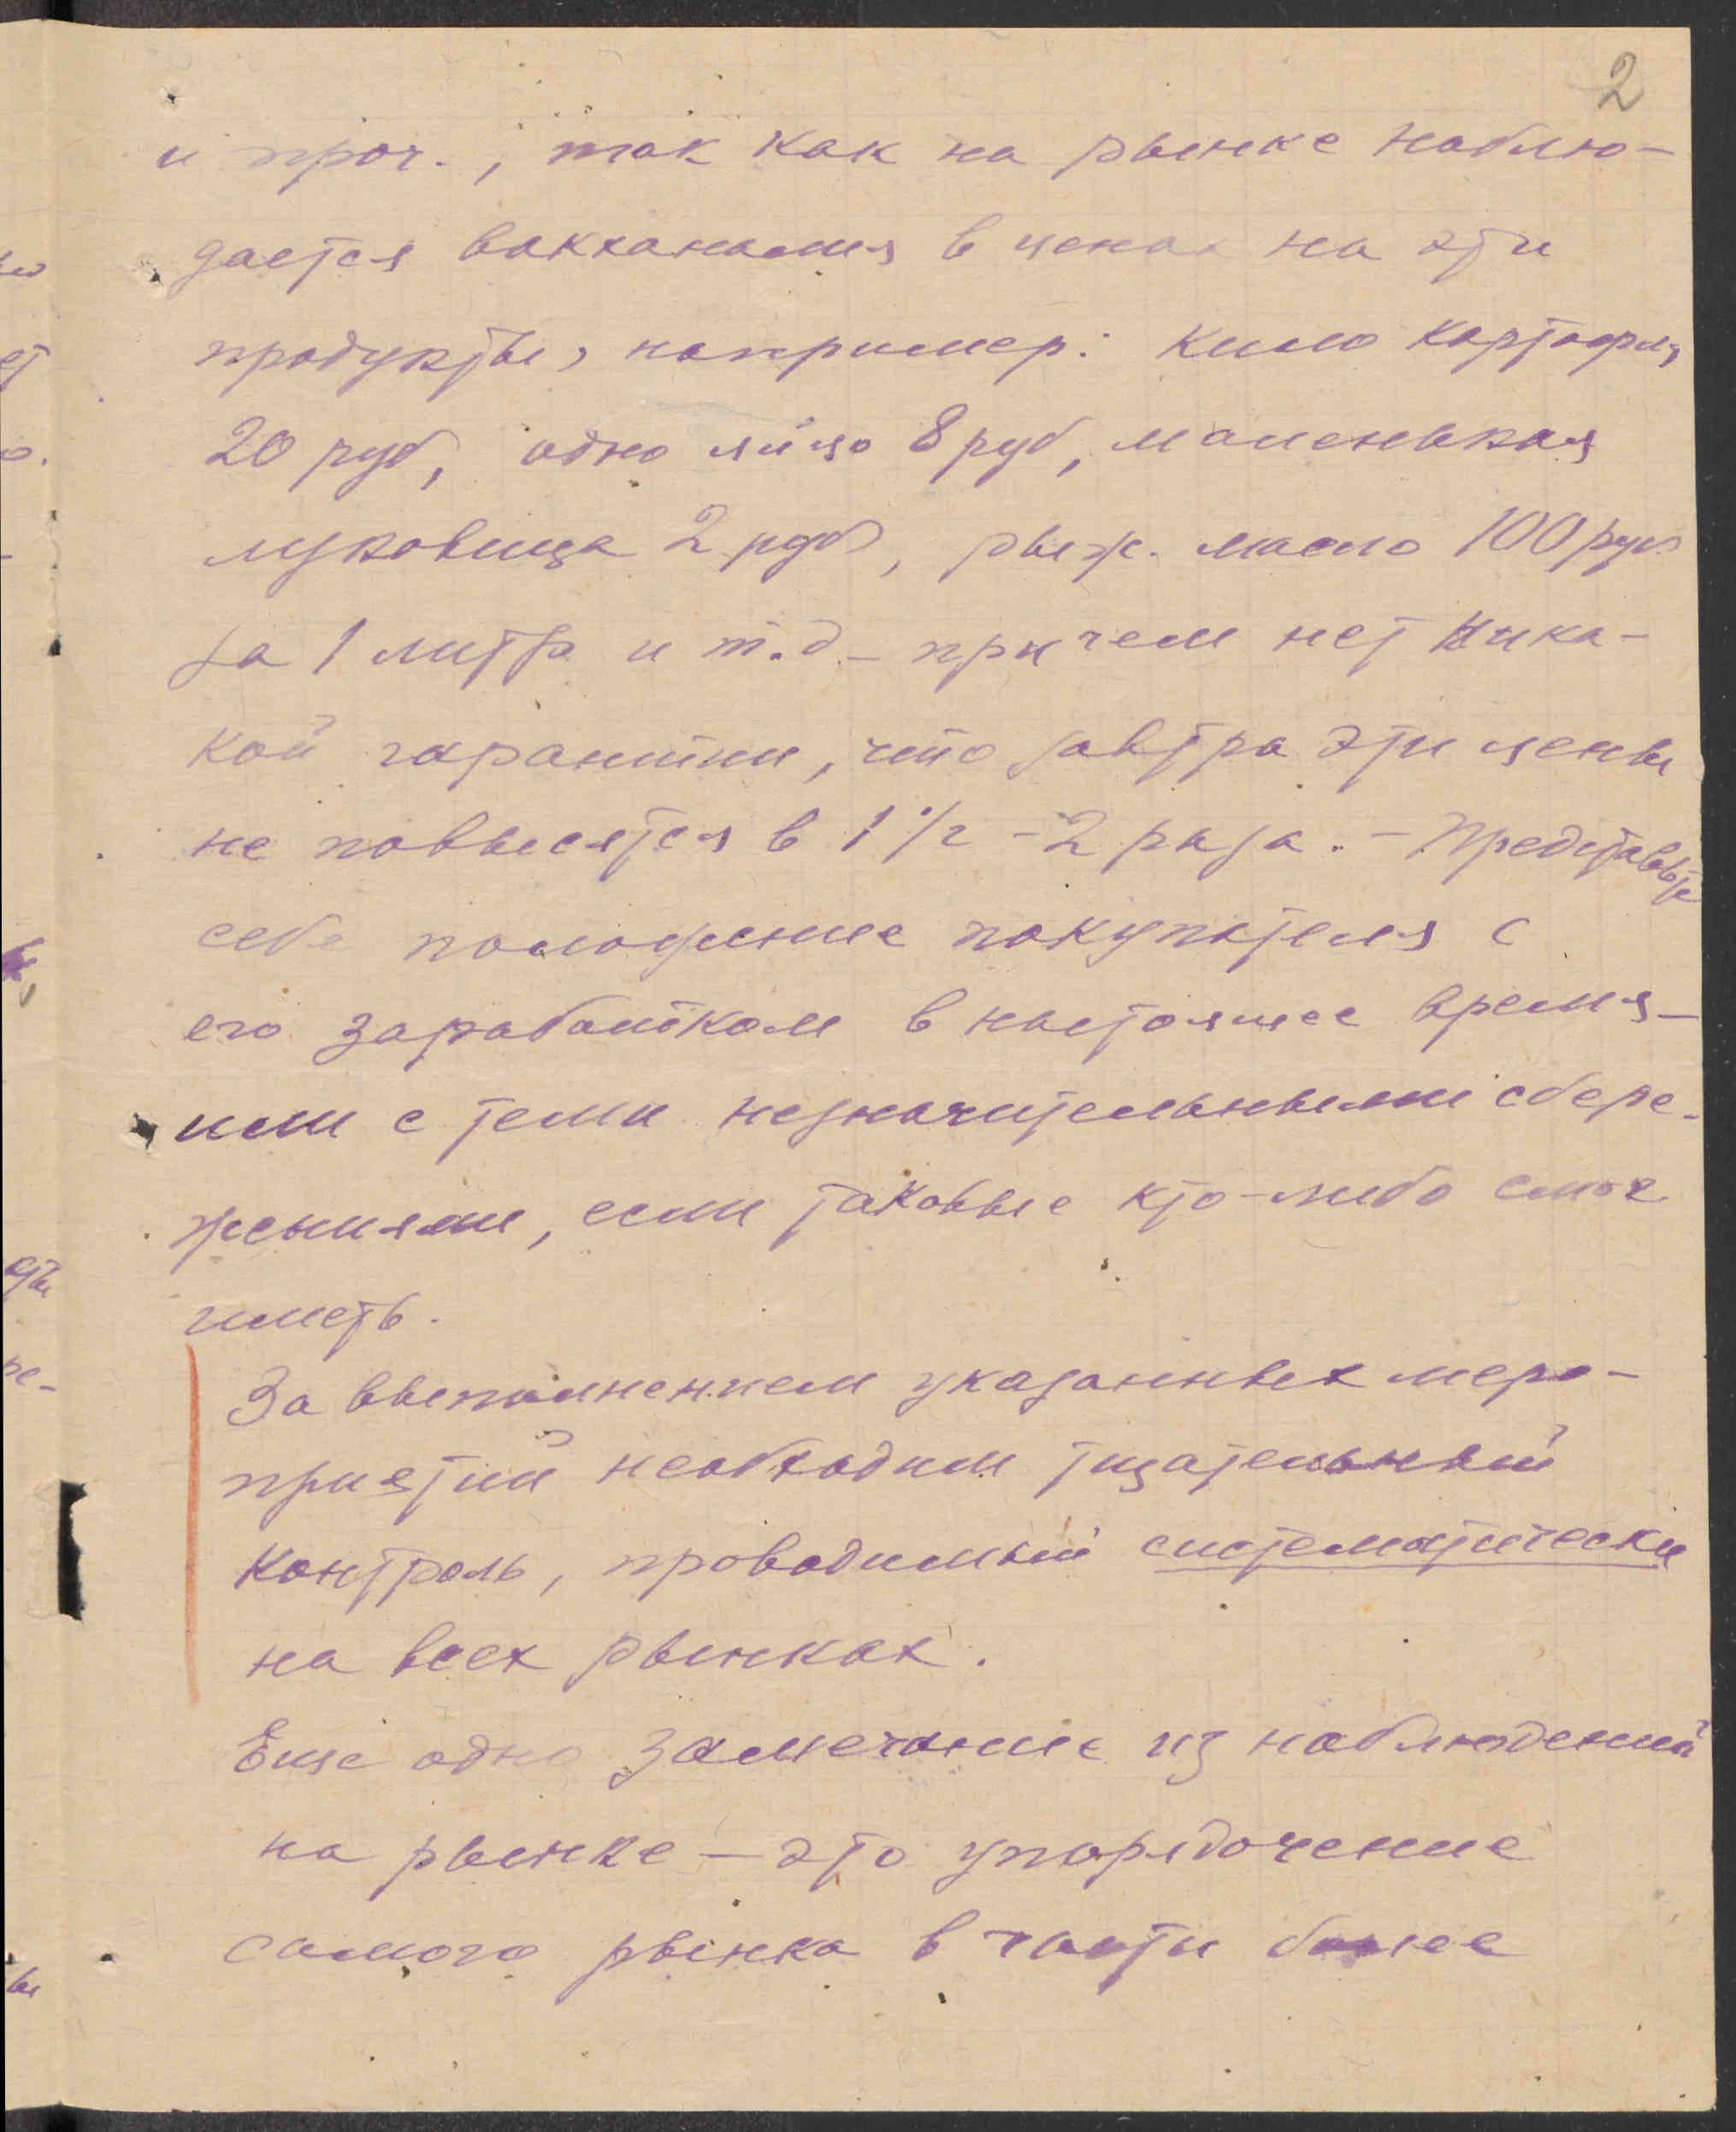 2
и проч., так как на рынке наблю-
дается вакханалия в ценах на эти
продукты, например: кило картофля
20 руб, одно яйцо 8 руб, маленькая
луковица 2 руб, рыж. масло 100 руб
за 1 литр и т.д. - причем нет ника-
кой гарантии, что завтра эти цены
не повысятся в 1 1/2 - 2 раза. - Представьте
себе положение покупателя с
его заработком в настоящее время -
или с теми незначительными сбере-
жениями, если таковые кто-либо смог
иметь.
За выполнением указанных меро-
приятий необходим тщательный
контроль, проводимый систематически
на всех рынках.
Еще одно замечание из наблюдений
на рынке - это упорядочение
самого рынка в части более